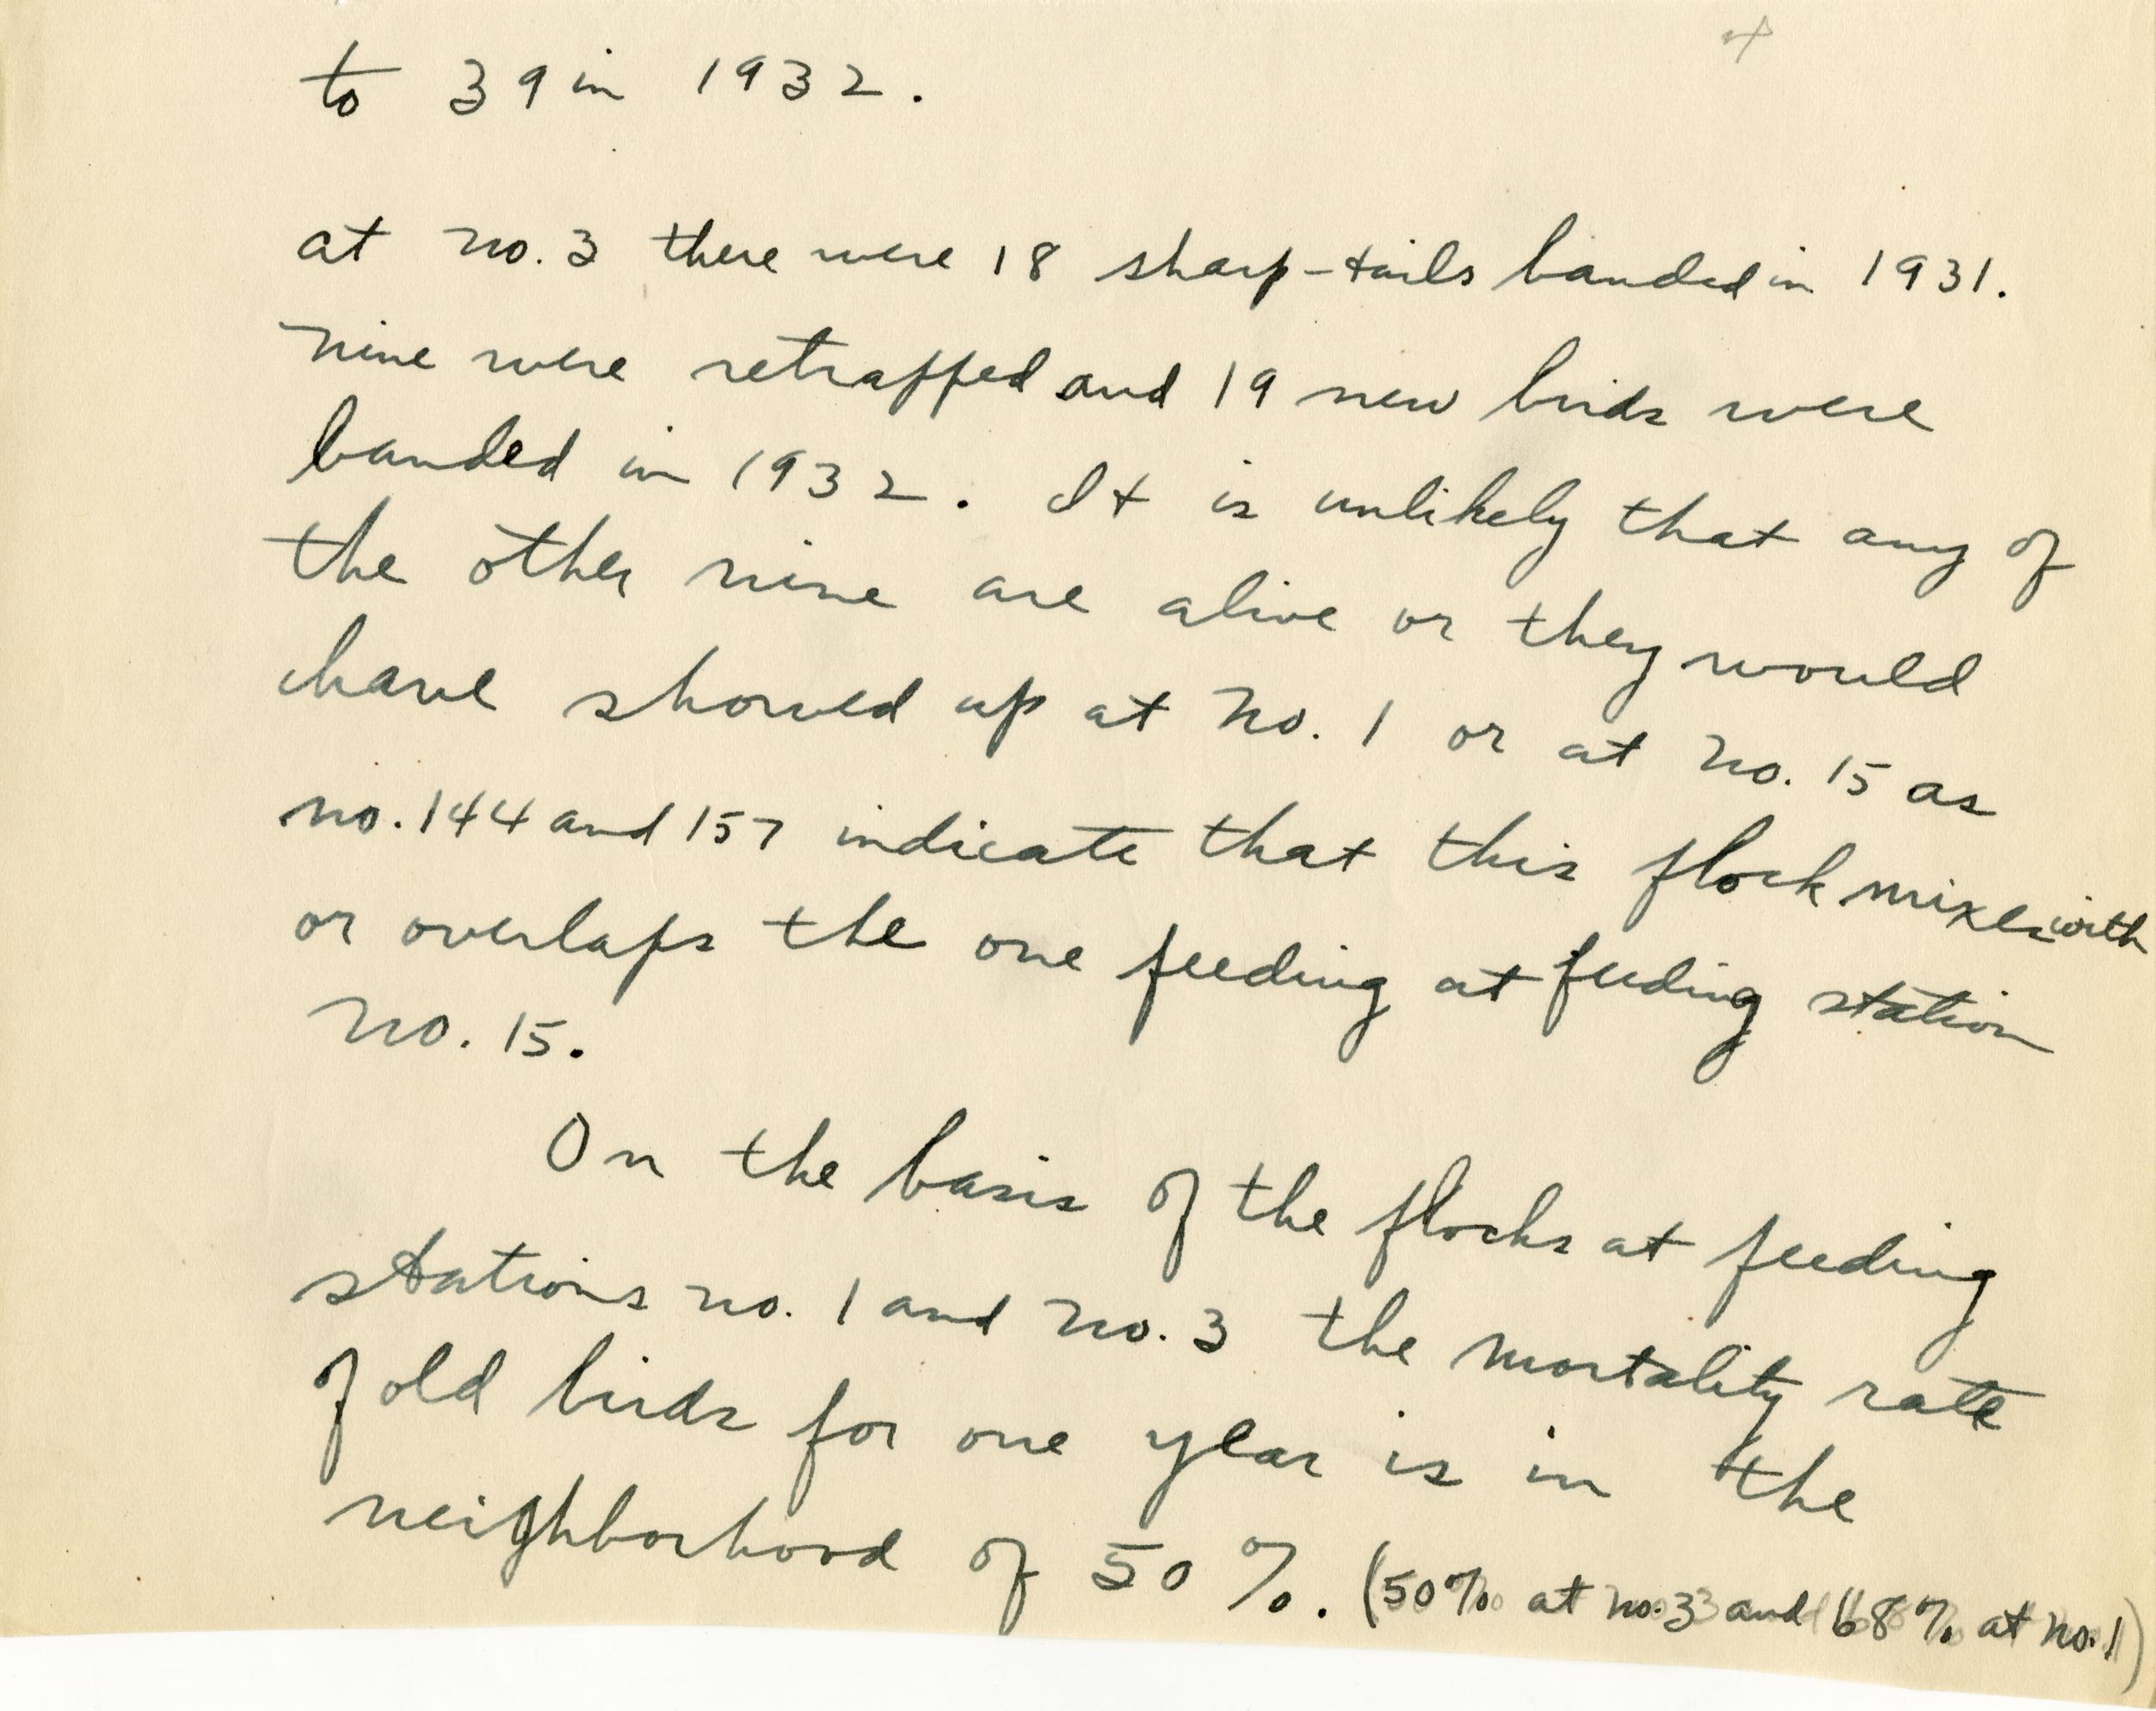 to 39 in 1932.
at no. 3 there were 18 sharp-tails banded in 1931.
nine were retrapped and 19 new birds were
banded in 1932. It is unlikely that any of
the other nine are alive or they would
have showed up at no. 1 or at no. 15 as
no. 144 and 157 indicate that this flock mixes with
or overlaps the one feeding at feeding station
no. 15.
On the basis of the flocks at feeding
stations no. 1 and no. 3 the mortality rate
of old birds for one year is in the
neighborhood of 50%. (50% at no. 3 and 68% at no. 1)